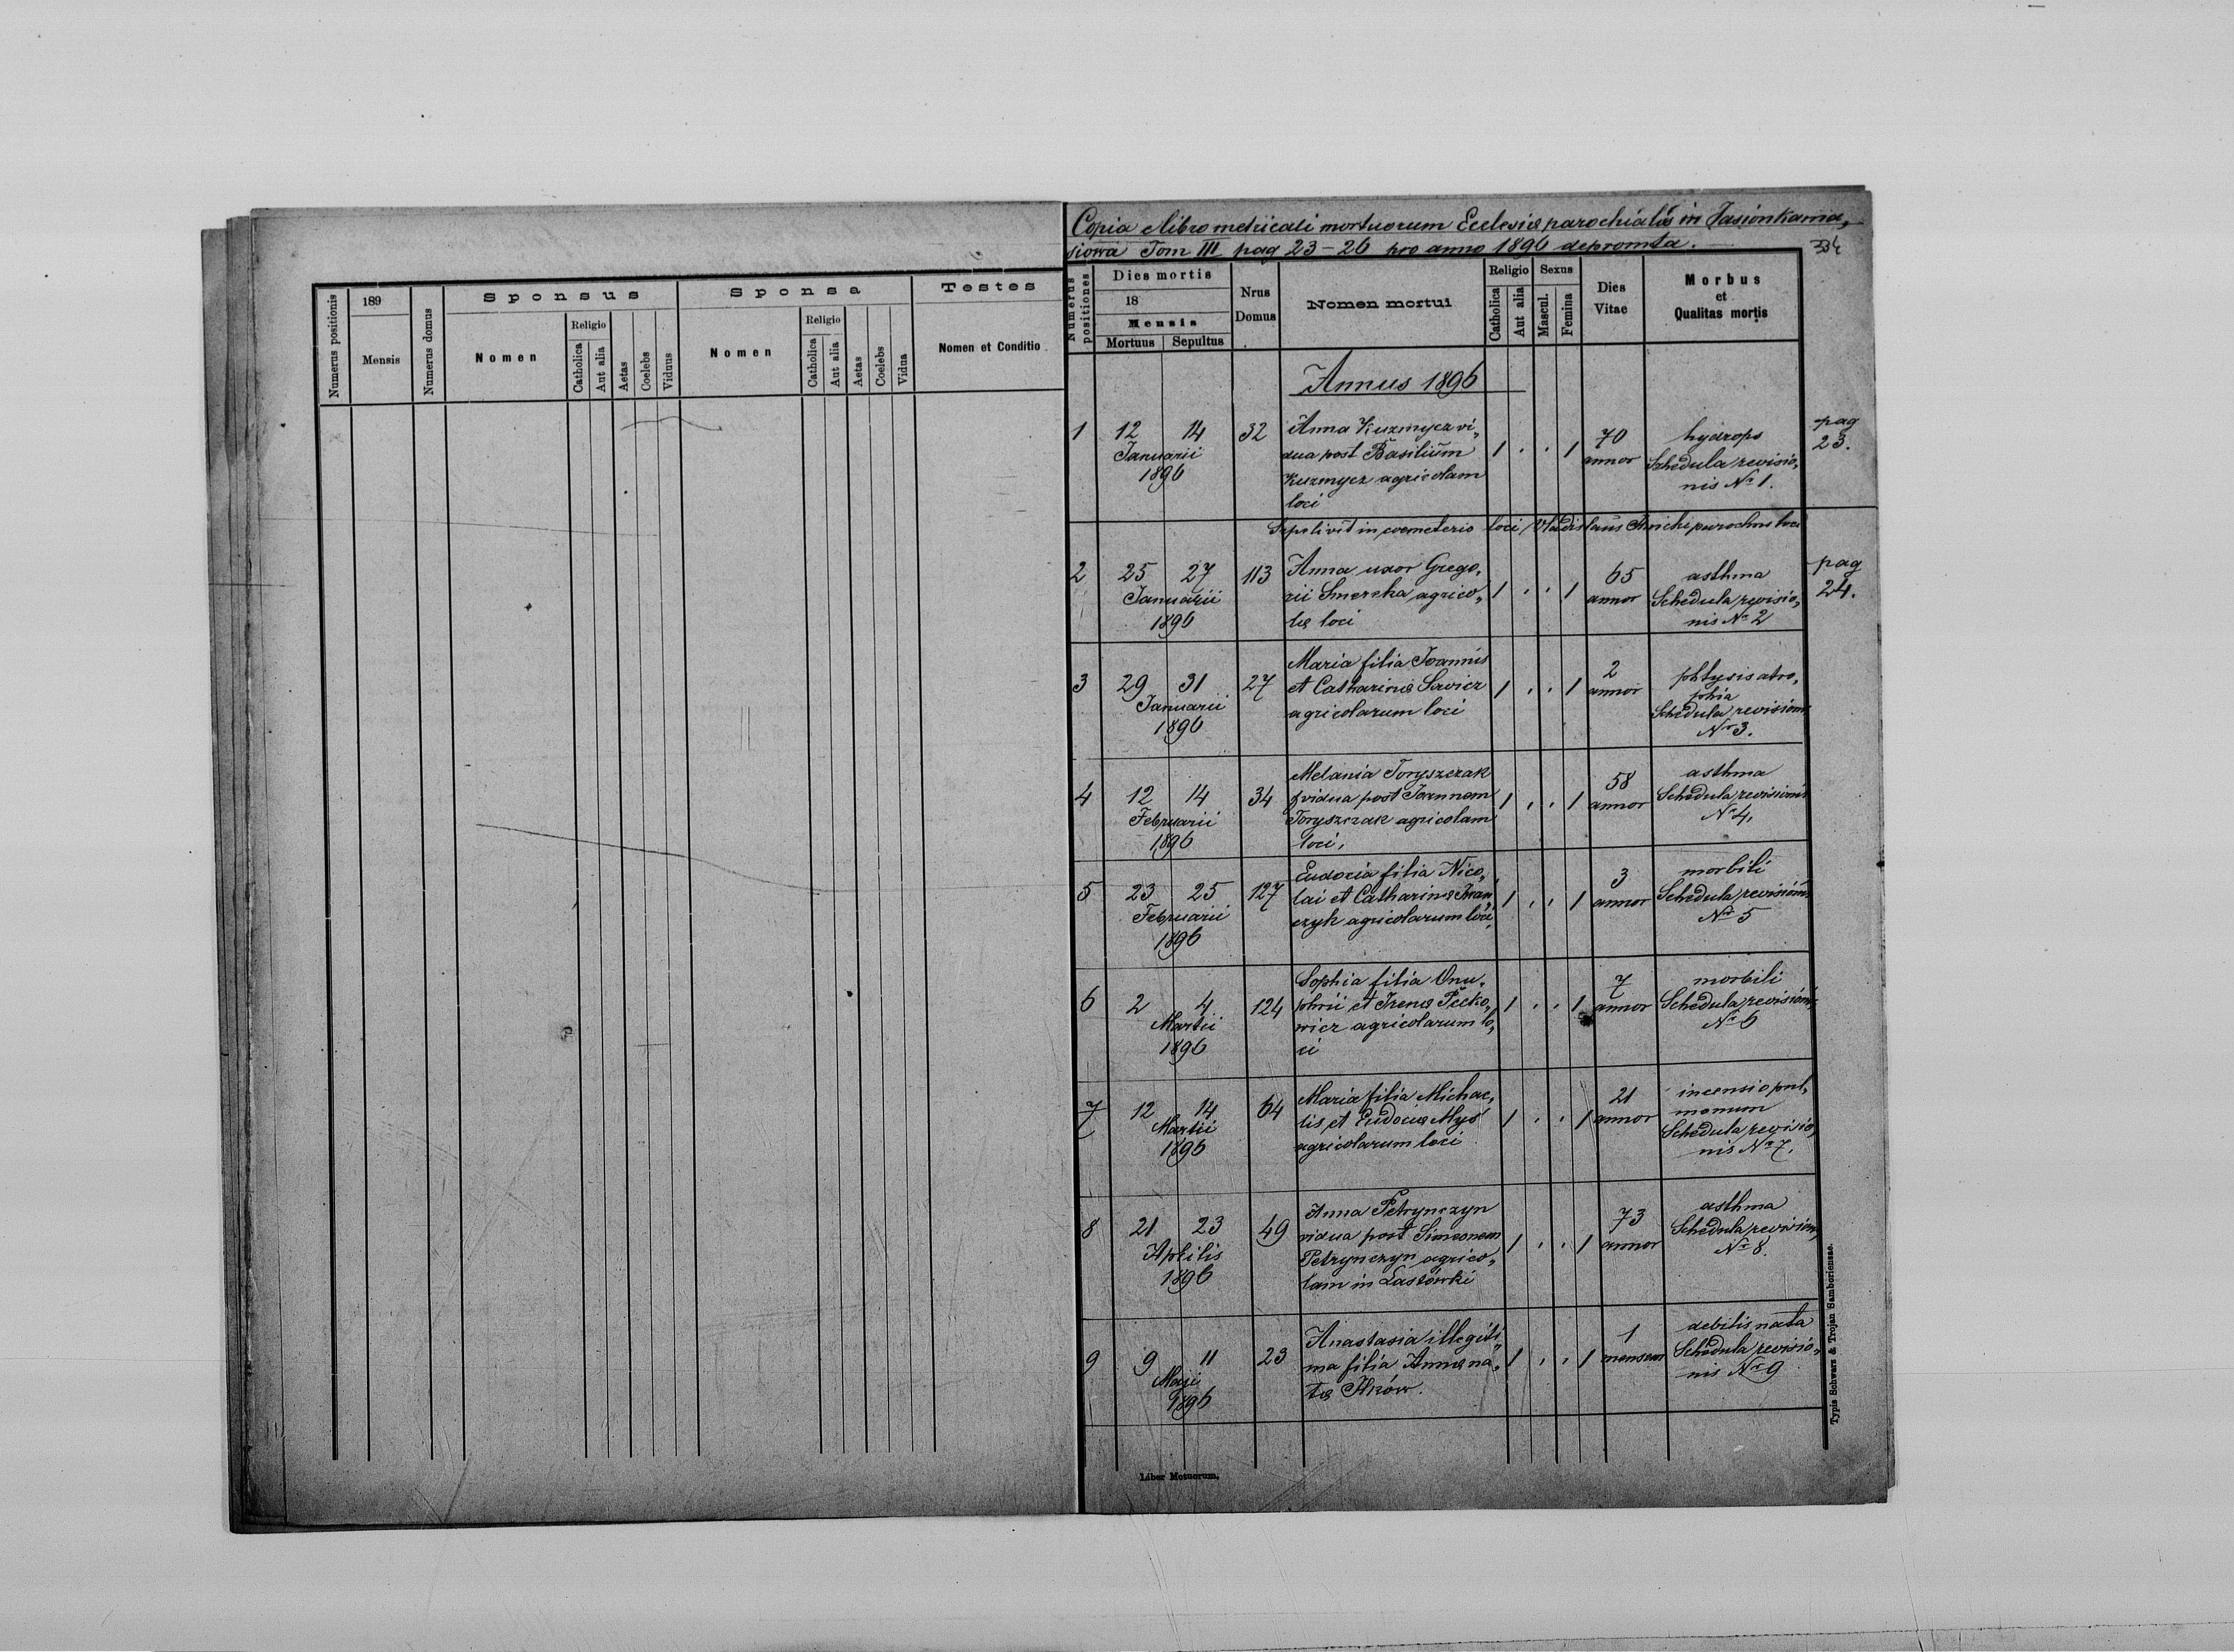 189
Mensis
Numerus positionis
Numerus domus
Sponsus
Nomen
Religio
Catholica
Aut alia
Aetas
Coelebs
Viduus
Sponsa
Nomen
Religio
Catholica
Aut alia
Aetas
Coelebs
Vidua
Testes
Nomen et Conditio
Copia e libro metricali mortuorum Ecclesiæ parochialis in Jasionkama„
siowa Tom III pag 23-26 pro anno 1896 depromta.
334
Numerus positiones
Dies mortis
18
Mensis
Mortuus Sepultus
Nrus Domus
Nomen mortui
Religio
Catholica
Aut alia
Sexus
Mascul.
Femina
Dies Vitae
Morbus
et
Qualitas mortis
Annus 1896
1 12 14 Januarii 1896 32
Anna Kuzmycz vi„
dua post Basilium
Kuzmycz agricolam
loci
1 . . 1 70 annor
hydrops
Schedula revisio„
nis No 1.
pag
23.
Sepelivit in coemeterio loci Vladislaus parochus loci
2 25 27 Januarii 1896 113
Anna uxor Grego„
rii Smereka agrico„
læ loci
1 . . 1 65 annor
asthma
Schedula revisio„
nis No 2
pag
24.
3 29 31 Januarii 1896 27
Maria filia Joannis
et Catharinæ
agricolarum loci
1 . . 1 2 annor
phtysis atro„
phia
Schedula revisionis
No 3.
4 12 14 Februarii 1896 34
Melania Toryszczak
vidua post Joannem
Toryszczak agricolam
loci.
1 . . 1 58 annor
asthma
Schedula revisionis
No 4.
5 23 25 Februarii 1896 127
Eudocia filia Nico„
lai et Catharinæ Iwań
czyk agricolarum loci
1 . . 1 3 annor
morbili
Schedula revisionis
No 5
6 2 4 Martii 1896 124
Sophia filia Onu„
phrii et Irenæ Petko„
wicz agricolarum lo„
ci
1 . . 1 7 annor
morbili
Schedula revisionis
No 6
7 12 14 Martii 1896 64
Maria filia Michae„
lis et Eudociæ Myś
agricolarum loci
1 . . 1 21 annor
incensio pul„
monum
Schedula revisio„
nis No 7.
8 21 23 Aprilis 1896 49
Anna Petrynczyn
vidua post Simeonem
Petrynczyn agrico„
lam in Lastówki
1 . . 1 73 annor
asthma
Schedula revisionis
No 8.
9 9 11 Maji 1896 23
Anastasia illegiti„
ma filia Annæ na„
tæ Ilków.
1 . . 1 1 mensem
debilis nata
Schedula revisio„
nis No 9
Liber Motuorum.
Typis Schwarz & Trojan Samboriensae.